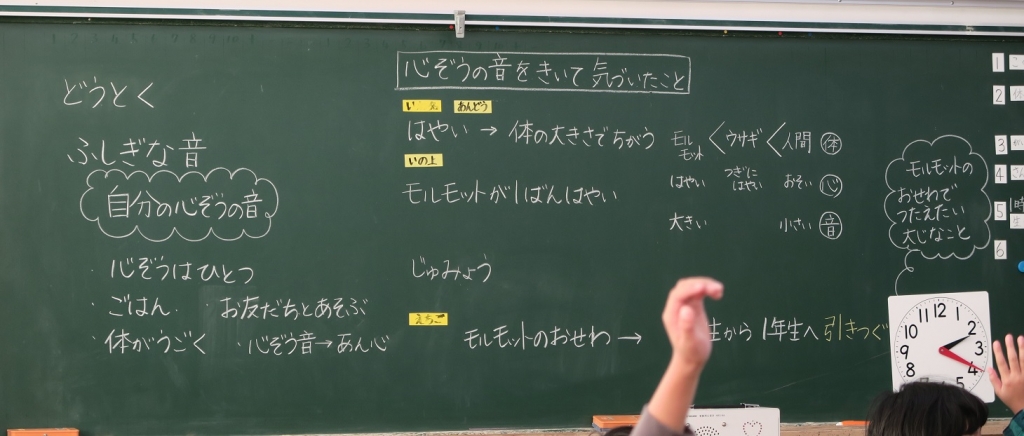 どうとく
ふしぎな音
自分の心ぞうの音
心ぞうはひとつ
・ごはん
お友だちとあそぶ
・体がうごく
・心ぞう音→あん心
心ぞうの音をきいて気づいたこと
あんどう
はやい → 体の大きさでちがう
いの上
モルモットが1ばんはやい
じゅみょう
えちご
モルモットのおせわ →
生から 1年生へ 引きつぐ
モルモット < ウサギ < 人間 体
はやい つぎにはやい おそい 心
大きい 小さい 音
モルモットの
おせわで
つたえたい
大じなこと
1
2
3
4
5
6
12
1
2
3
4
5
7
8
9
10
11